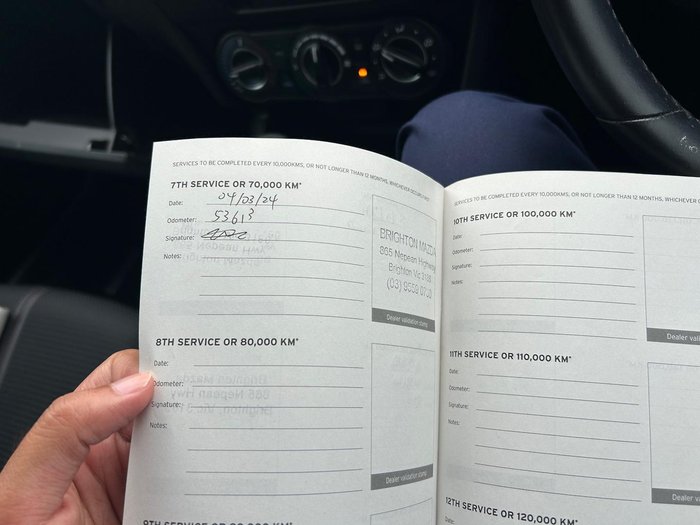 SERVICES TO BE COMPLETED EVERY 10,000KMS, OR NOT LONGER THAN 12 MONTHS, WHICHEVER OCCURS FIRST
7TH SERVICE OR 70,000 KM*
Date: 04/03/24
Odometer: 53613
Signature:
Notes:
BRIGHTON MAZDA
865 Nepean Highway
Brighton Vic 3186
Dealer validation stamp
8TH SERVICE OR 80,000 KM*
Date:
Odometer:
Signature:
Notes:
Dealer validation stamp
SERVICES TO BE COMPLETED EVERY 10,000KMS, OR NOT LONGER THAN 12 MONTHS, WHICHEVER
10TH SERVICE OR 100,000 KM*
Date:
Odometer:
Signature:
Notes:
Dealer vali
11TH SERVICE OR 110,000 KM*
Date:
Odometer:
Signature:
Notes:
Dealer va
12TH SERVICE OR 120,000 KM*